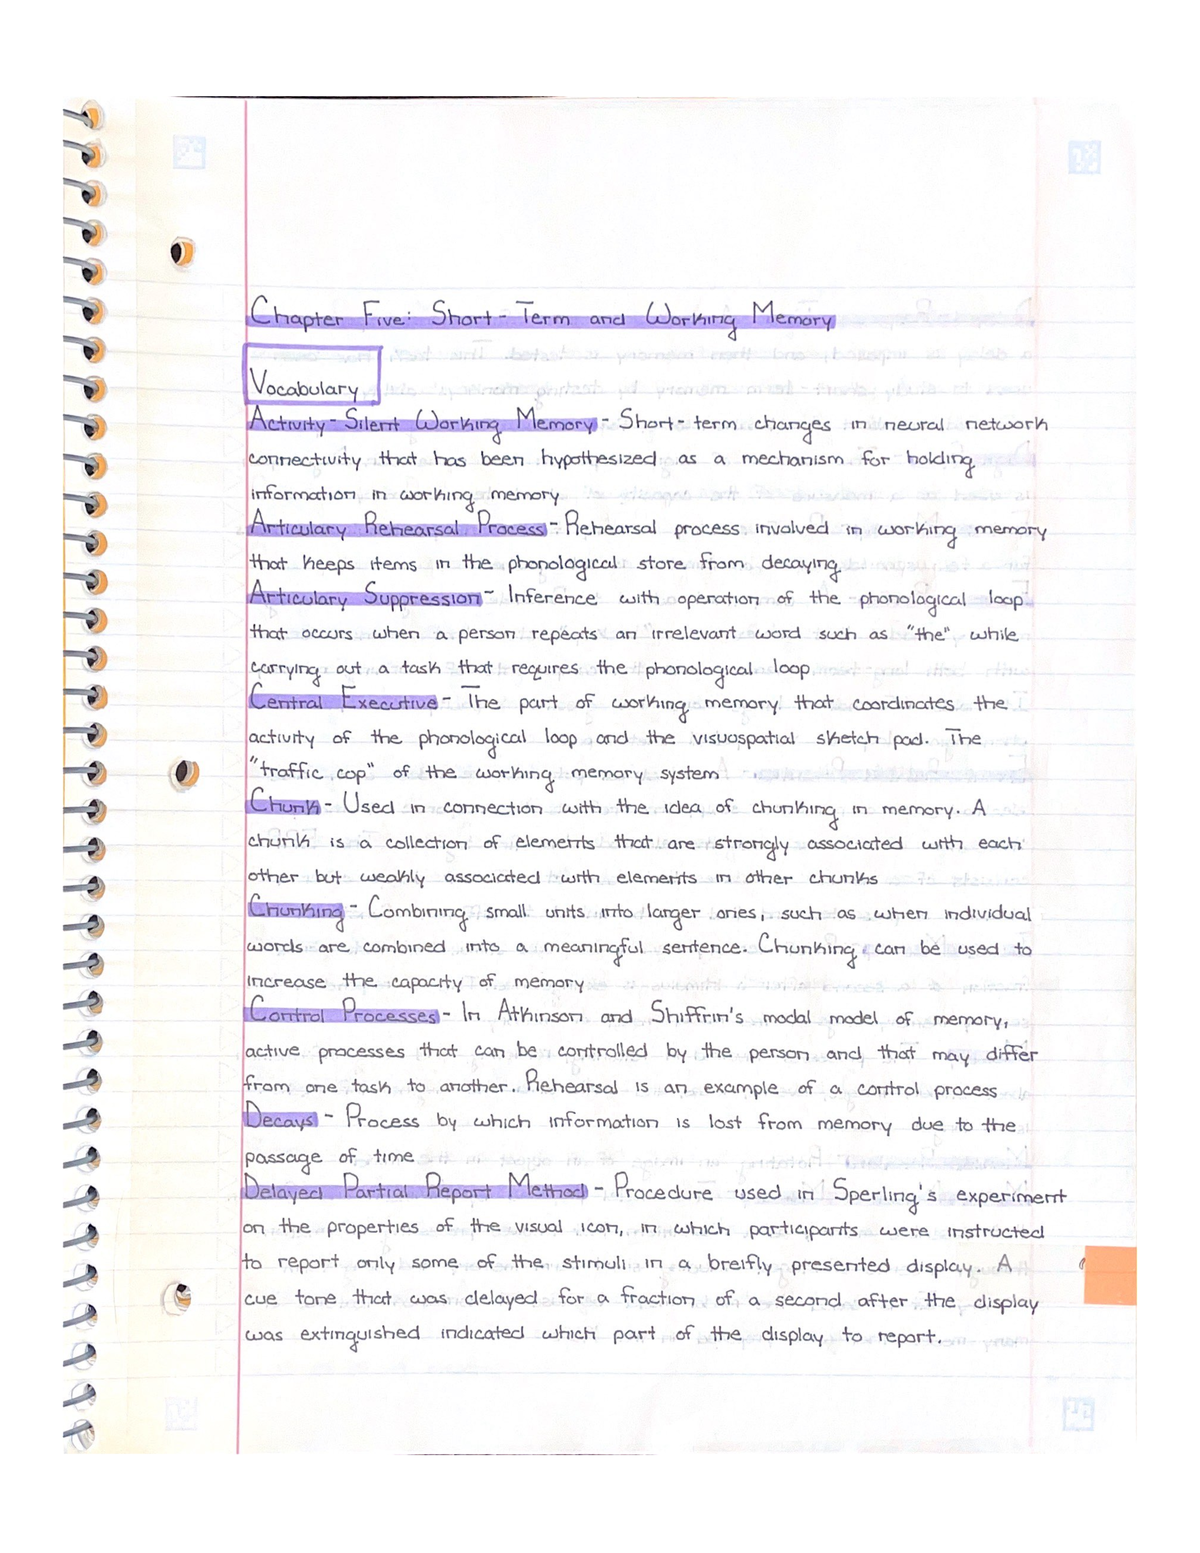 Chapter Five: Short-Term and Working Memory
Vocabulary
Activity-Silent Working Memory - Short-term changes in neural network
connectivity that has been hypothesized as a mechanism for holding
information in working memory
Articulary Rehearsal Process - Rehearsal process involved in working memory
that keeps items in the phonological store from decaying
Articulary Suppression - Inference with operation of the phonological loop
that occurs when a person repeats an irrelevant word such as "the" while
carrying out a task that requires the phonological loop
Central Executive - The part of working memory that coordinates the
activity of the phonological loop and the visuospatial sketch pad. The
"traffic cop" of the working memory system
Chunk - Used in connection with the idea of chunking in memory. A
chunk is a collection of elements that are strongly associated with each
other but weakly associated with elements in other chunks
Chunking - Combining small units into larger ones, such as when individual
words are combined into a meaningful sentence. Chunking can be used to
increase the capacity of memory
Control Processes - In Atkinson and Shiffrin's modal model of memory,
active processes that can be controlled by the person and that may differ
from one task to another. Rehearsal is an example of a control process
Decays - Process by which information is lost from memory due to the
passage of time
Delayed Partial Report Method - Procedure used in Sperling's experiment
on the properties of the visual icon, in which participants were instructed
to report only some of the stimuli in a breifly presented display. A
cue tone that was delayed for a fraction of a second after the display
was extinguished indicated which part of the display to report.